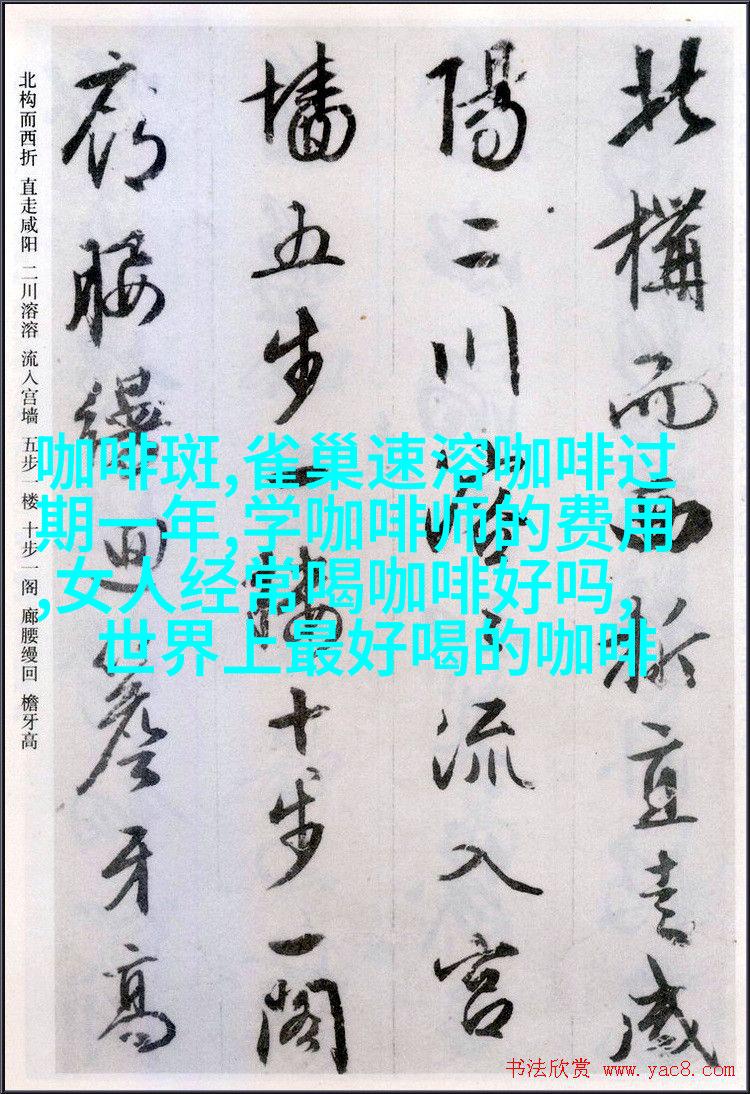 北構而西折直走咸
陽二川溶溶流入宫
墻五步一樓十步一閣
廊腰縵迴簷牙高
北构而西折 直走咸阳 二川溶溶 流入宫墙 五步一楼 十步一阁 廊腰缦回 檐牙高
咖啡斑,雀巢速溶咖啡过
期一年,学咖啡师的费用
,女人经常喝咖啡好吗,
世界上最好喝的咖啡
书法欣赏 www.yac8.com